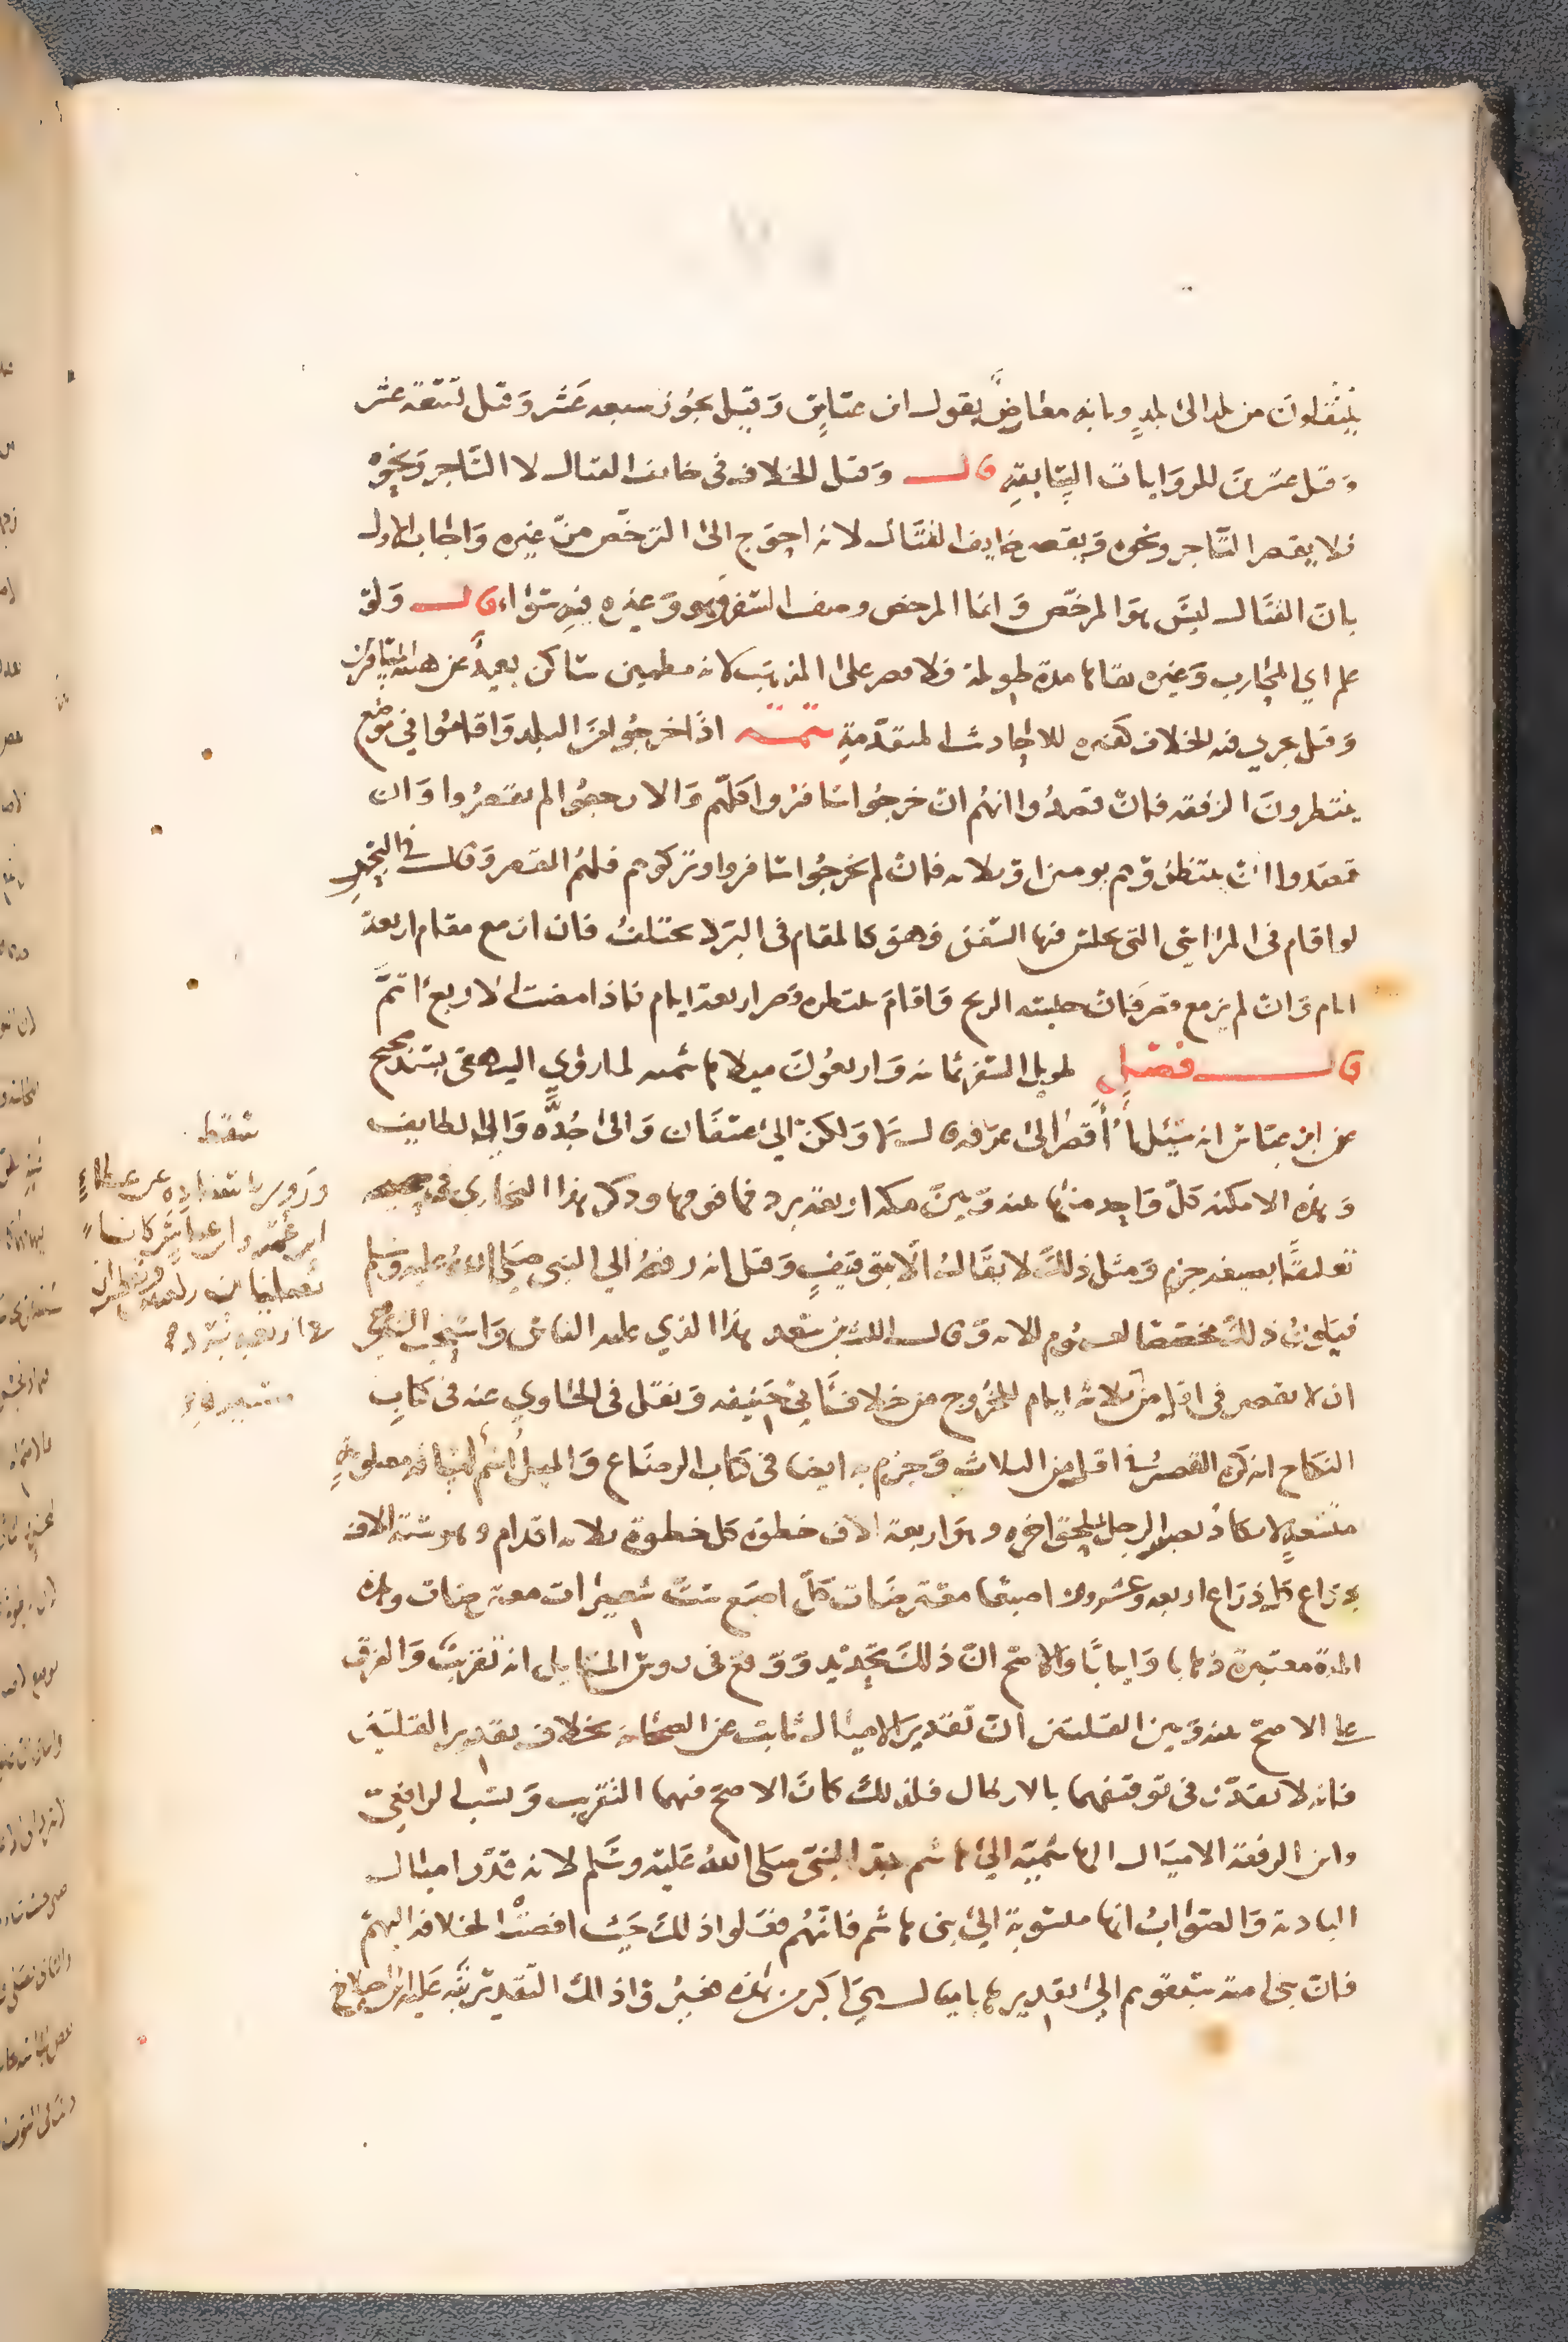 ينتقلون من بلد الى بلد وبانه معارض بقول ابن عباس وقيل يجوز سبعة عشر وقيل تسعة عشر
وقيل عشرين للروايات السابقة قال وقيل الخلاف في خائف القتال لا التاجر ونحوه
فلا يقصر التاجر ونحوه ويقصر خايف القتال لانه احوج الى الترخص من غيره واجاب الاول
بان القتال ليس هو المرخص وانما المرخص وصف السفر وهو وغيره فيه سواء قال ولو
علم اي المحارب وغيره بقاها مدة طويلة فلا قصر على المذهب لانه مطمين ساكن بعيد عن هيئة المسافرين
وقيل يجري فيه الخلاف كغيره للاحاديث المتقدمة تتمة اذا خرجوا من البلد واقاموا في موضع
ينتظرون الرفقة فان قصدوا انهم ان خرجوا سافروا كلهم والا رجعوا لم يقصروا وان
قصدوا ان ينتظروهم يومين او ثلاثه فان لم يخرجوا سافروا وتركوهم فلهم القصر وقال في البحر
لو اقام في المراسي التي يحبس فيها السفن فهو كالمقام في البر لا يختلف فان ازمع مقام اربعة
ايام وان لم يزمع قصر فان حبسته الريح فاقام ينتظره قصر اربعة ايام فاذا مضت الاربع اتم
قال فصل طويل السفر ثمانية واربعون ميلا هاشمية لما روى البيهقي بسند صحيح
عن ابن عباس انه سئل أأقصر الى عرفة قال لا ولكن الى عسفان والى جدة والى الطايف
وهذه الامكنة كل واحد منها بينه وبين مكة اربعة برد فما فوقها وذكر هذا البخاري في صحيحه
تعليقا بصيغة جزم ومثل ذلك لا يقال الا بتوقيف وقيل انه رفعه الى النبي صلى الله عليه وسلم
فيكون ذلك مخصصا لعموم الاية وقال الليث بن سعد هذا الذي عليه الناس واستحب الشافعي
ان لا يقصر في اقل من ثلاثة ايام للخروج من خلاف ابي حنيفة ونقل في الحاوي عنه في كتاب
النكاح انه كره القصر في اقل من الثلاث وجزم به ايضا في كتاب الرضاع والميل اسم لمسافة معلومة
وهو اربعة الاف خطوة كل خطوة ثلاثة اقدام وهو ستة الاف
ذراع كل ذراع اربعة وعشرون اصبعا معترضات كل اصبع ست شعيرات معترضات وهذه
المدة معتبرة ذهابا وايابا والاصح ان ذلك تحديد ووقع في رءوس المسايل انه تقريب والفرق
على الاصح بينه وبين القلتين ان تقدير الاميال ثابت عن الصحابة بخلاف تقدير القلتين
فانه لا تقدير في توقيفهما بالارطال فلذلك كان الاصح فيهما التقريب ونسب الرافعي
وابن الرفعة الاميال الهاشمية الى هاشم جد النبي صلى الله عليه وسلم لانه قدر اميال
البادية والصواب انها منسوبة الى بني هاشم فانهم فعلوا ذلك حيث افضت الخلافة اليهم
فان بني امية سبقوهم الى تقديرها باميال هي اكبر من هذه
سقط
وروي باسناده عن عطاء
ابن عمر وابن عباس كانا
يصليان ركعتين ويفطران
في اربعة برد